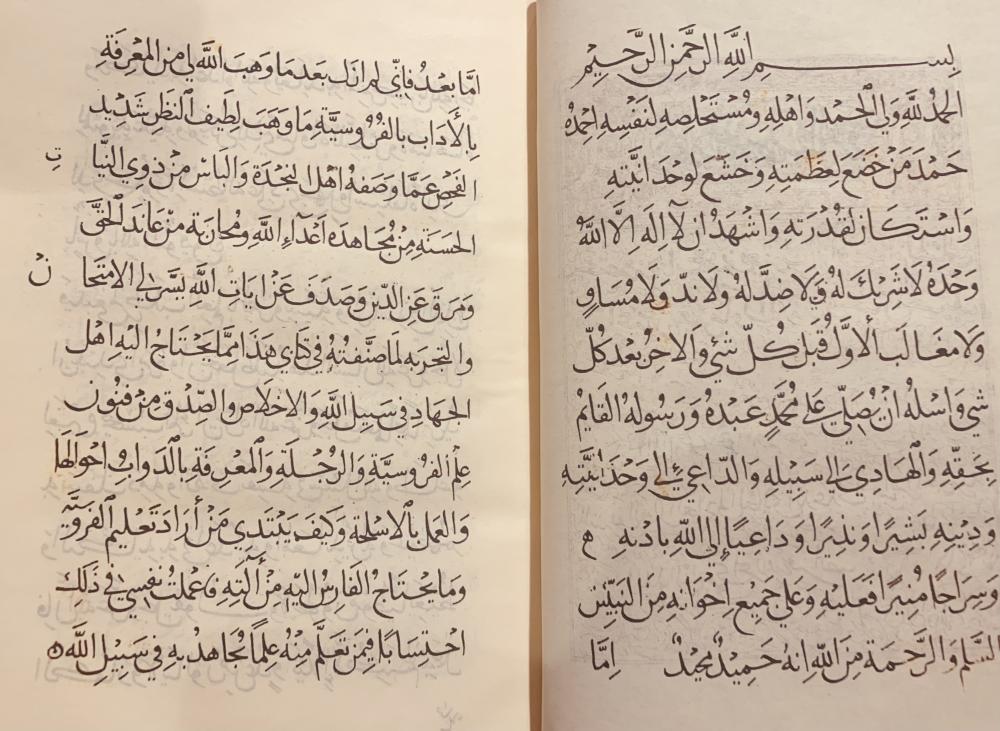 بسم الله الرحمن الرحيم
الحمد لله ولي الحمد واهله ومستخلصه لنفسه احمده
حمد من خضع لعظمته وخشع لوحدانيته
واستكان لقدرته واشهد ان لا اله الا الله
وحده لا شريك له ولا ضد له ولا ند ولا مساوي
ولا مغالب الاول قبل كل شي والاخر بعد كل
شي واسله ان يصلي على محمد عبده ورسوله القايم
بحقه والهادي الى سبيله والداعي الى وحدانيته
ودينه بشيرا ونذيرا وداعيا إلى الله باذنه
وسراجا منيرا فعليه وعلى جميع اخوانه من النبيين
السلم والرحمة من الله انه حميد مجيد اما
اما بعد فاني لم ازل بعد ما وهب الله لي من المعرفة
بالأداب بالفروسية ما وهب لطيف النظر شديد
الفحص عما وصفه اهل النجدة والباس من ذوي النيات
الحسنة من مجاهدة أعداء الله ومجانبة من عاند الحق
ومرق عن الدين وصدف عن ايات الله يسر لي الامتحان
والتجربه لما صنفته في كتابي هذا مما يحتاج اليه اهل
الجهاد في سبيل الله والاخلاص والصدق من فنون
علم الفروسية والرجلة والمعرفة بالدواب احوالها
والعمل بالاسلحة وكيف يبتدي من أراد تعليم الفروسية
وما يحتاج الفارس اليه من ألته فاعملت نفسي في ذلك
احتسابا فيمن تعلم منه علما تجاهد به في سبيل الله